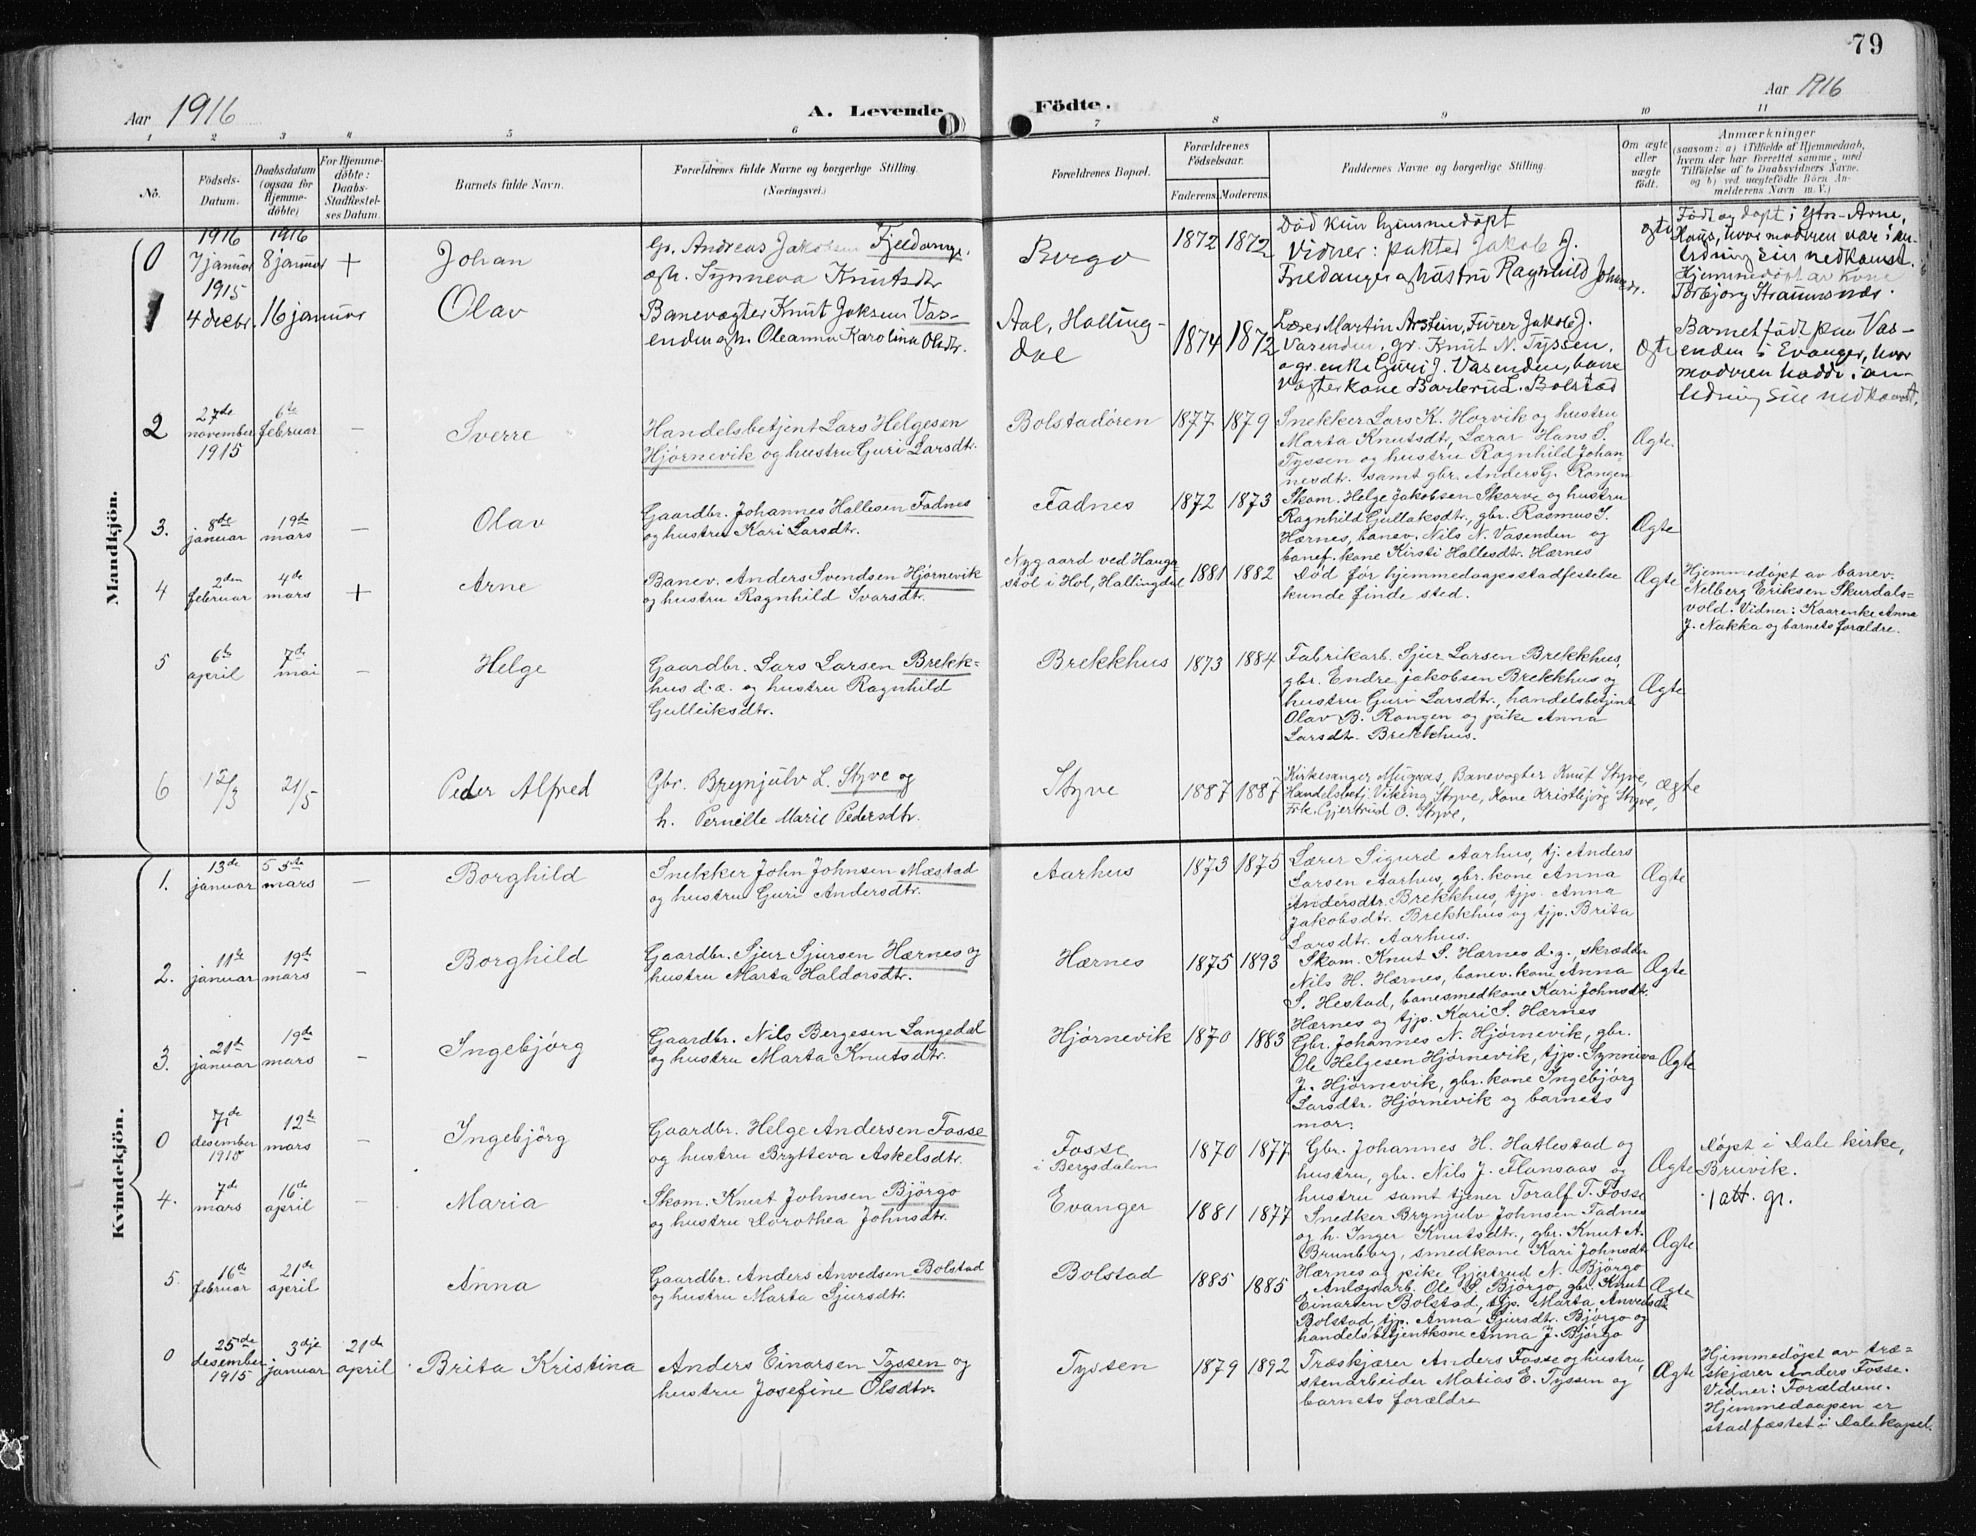 79
Aar 1916
A. Levende
Födte.
Aar 1916
1 2 3 4 5 6 7 8 9 10 11
No.
Födsels-
Datum.
Daabsdatum
(ogsaa for
Hjemme-
döbte)
For Hjemme-
döbte:
Daabs-
Stadfæstel-
ses Datum.
Barnets fulde Navn.
Forældrenes fulde Navne og borgerlige Stilling
(Næringsvei.)
Forældrenes Bopæl.
Forældrenes
Födselsaar.
Faderens. Moderens.
Faddernes Navne og borgerlige Stilling.
Om ægte
eller
uægte
födt.
Anmærkninger
(saasom: a) i Tilfælde af Hjemmedaab,
hvem der har forrettet samme, med
Tilföielse af to Daabsvidners Navne,
og b) ved uægtefödte Börn An-
melderens Navn m. V.)
Mandkjön.
0
1916
7 januar
1916
8 januar
+
Johan
Gr. Andreas Jakobsen Fjeldange
og h. Synneva Knutsdtr
Børgo
1872 1872
Død kun hjemmedøpt
Vidner: paktar Jakob J.
Fjeldanger og hustru Ragnhild
ægte
Født og døpt i Ytre-Arne,
Haus, hvor modren var i an-
ledning sin nedkomst.
Hjemmedøpt av kone
Torbjørg Straumsnæs.
1
1915
4 decbr
16 januar
Olav
Banevogter Knut Jaksen Vas-
enden og h. Oleanna Karolina Olsdtr.
Aal, Halling-
dal
1874 1872
Lærer Martin Arstein, Furer Jakob J.
Vasenden, gr. Knut N. Tyssen,
og gr. enke Guri J. Vasenden, bane
vogterkone Barbru L. Bolstad
ægte
Barnet født paa Vas-
enden i Evanger, hvor
modren hadde i an-
ledning sin nedkomst.
2
27de
november
1915
6te
februar
—
Sverre
Handelsbetjent Lars Helgesen
Hjørnevik og hustru Guri Larsdtr.
Bolstadøren
1877 1879
Snekker Lars K. Horvik og hustru
Marta Knutsdtr, Lærar Hans S.
Tyssen og hustru Ragnhild Johan-
nesdtr. samt gbr. Anders G. Rongen
Ægte.
3.
8de
januar
19de
mars
—
Olav
Gaardbr. Johannes Hallesen Fadnes
og hustru Kari Larsdtr.
Fadnes
1872 1873
Skom. Helge Jakobsen Skorve og hustru
Ragnhild Gullaksdtr., gbr. Rasmus S.
Hærnes, banev. Nils N. Vasenden og
banef. kone Kirsti Hallesdtr. Hærnes
Ægte
4
2den
februar
4de
mars
+
Arne
Banev. Anders Svendsen Hjørnevik
og hustru Ragnhild Ivarsdtr.
Nygaard ved Haug-
støl i Hol, Hallingdal
1881 1882
Død før hjemmedaapsstadfestelse
kunde finde sted.
Ægte
Hjemmedøpt av banev.
Nelberg Eriksen Skurdals-
vold. Vidner: Kaarenke Anna
J. Nakka og barnets forældre.
5
6te
april
7de
mai
—
Helge
Gaardbr. Lars Larsen Brekk-
hus d.æ. og hustru Ragnhild
Gulleiksdtr.
Brekkhus
1873 1884
Fabrikarb. Sjur Larsen Brekkhus,
gbr. Endre Jakobsen Brekkhus og
hustru Guri Larsdtr., handelsbetjent
Olav B. Rongen og pike Anna
Larsdtr. Brekkhus.
Ægte
6
12/3
21/5
Peder Alfred
Gbr. Brynjulv L. Styve og
h. Pernille Marie Pedersdtr.
Styve
1887 1887
Kirkesanger Mugaas, Banevogter Knut Styve,
Handelsbetj. Viking Styve, Kone Kristbjørg Styve,
Frk. Gjertrud O. Styve,
ægte
Kvindekjön.
1.
13de
januar
5te
mars
—
Borghild
Snekker John Johnsen Mæstad
og hustru Guri Andersdtr.
Aarhus
1873 1875
Lærer Sigurd Aarhus, tj. Anders
Larsen Aarhus, gbr. kone Anna
Andersdtr. Brekkhus, tjp. Anna
Jakobsdtr. Brekkhus og tjp. Brita
Larsdtr. Aarhus.
Ægte
2.
11te
januar
19de
mars
—
Borghild
Gaardbr. Sjur Sjursen Hærnes og
hustru Marta Haldorsdtr.
Hærnes
1875 1893
Skom. Knut S. Hærnes d.y., skrædder
Nils H. Hærnes, banev. kone Anna
S. Hestad, banesmedkone Kari Johnsdtr.
Hærnes og tjp. Kari S. Hærnes
Ægte
3.
21de
januar
19de
mars
—
Ingebjörg
Gaardbr. Nils Bergesen Langedal
og hustru Marta Knutsdtr.
Hjørnevik
1870 1883
Gbr. Johannes N. Hjørnevik, gbr.
Ole Helgesen Hjørnevik, tjp. Synniva
J. Hjørnevik, gbr. kone Ingebjørg
Larsdtr. Hjørnevik og barnets
mor.
Ægte
0
7de
desember
1915
12te
mars
—
Ingebjörg
Gaardbr. Helge Andersen Fosse
og hustru Brytteva Askelsdtr.
Fosse
i Bergsdalen
1870 1877
Gbr. Johannes H. Hatlestad og
hustru, gbr. Nils J. Flansaas og
hustru samt tjener Toralf T. Fosse
Ægte
Døpt i Dale kirke,
Bruvik.
4.
7de
mars
16de
april
—
Maria
Skom. Knut Johnsen Björgo
og hustru Dorothea Johnsdtr.
Evanger
1881 1877
Snedker Brynjulv Johnsen Fadnes
og h. Inger Knutsdtr., gbr. Knut A.
Brunborg, smedkone Kari Johnsdtr.
Hærnes og pike Gjertrud N. Björgo
Ægte
1 att. gr.
5.
16de
februar
21de
april
Anna
Gaardbr. Anders Anvedsen Bolstad
og hustru Marta Sjursdtr.
Bolstad
1885 1885
Anlagsarb. Ole S. Björgo, gbr. Knut
Einarsen Bolstad, tjp. Marta Anvedsd.
Bolstad, tjp. Anna Sjursdtr. Björgo og
handelsbetjentkone Anna J. Björgo
Ægte
0
25de
desember
1915
3dje
januar
21de
april
Brita Kristina
Anders Einarsen Tyssen og
hustru Josefine Olsdtr.
Tyssen
1879 1892
Træskjærer Anders Fosse og hustru,
stenarbeider Matias E. Tyssen og
barnets forældre
Ægte
Hjemmedøpt av træ-
skjærer Anders Fosse.
Vidner: Forældrene.
Hjemmedaapen er
stadfæstet i Dale kapel.